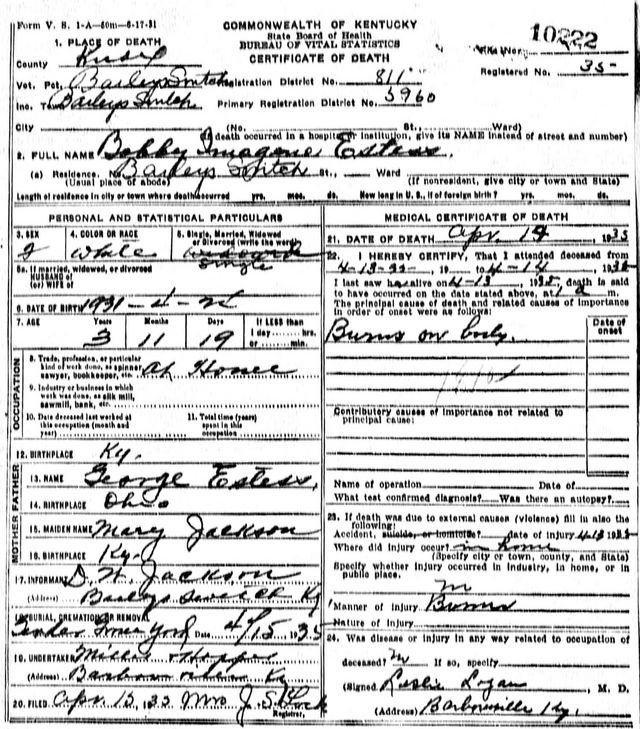 Form V. S. 1-A—50m—6-17-31
COMMONWEALTH OF KENTUCKY
State Board of Health
BUREAU OF VITAL STATISTICS
CERTIFICATE OF DEATH
10222
1. PLACE OF DEATH
County
Registered No. 35
Vot. Pct. Baileys Switch Registration District No. 811
Inc. Town Baileys Switch Primary Registration District No. 5960
City (No. St., Ward)
(If death occurred in a hospital or institution, give its NAME instead of street and number)
2. FULL NAME Bobby Imagene Estess.
(a) Residence. No. Baileys Switch St., Ward
(Usual place of abode) (If nonresident, give city or town and State)
Length of residence in city or town where death occurred yrs. mos. ds. How long in U. S., if of foreign birth? yrs. mos. ds.
PERSONAL AND STATISTICAL PARTICULARS
3. SEX 4. COLOR OR RACE 5. Single, Married, Widowed or Divorced (write the word)
F White Single
5a. If married, widowed, or divorced
HUSBAND of
(or) WIFE of
6. DATE OF BIRTH 1931-4-2
7. AGE Years Months Days If LESS than
1 day hrs.
or min.
3 11 19
OCCUPATION
8. Trade, profession, or particular
kind of work done, as spinner,
sawyer, bookkeeper, etc. At Home
9. Industry or business in which
work was done, as silk mill,
sawmill, bank, etc.
10. Date deceased last worked at
this occupation (month and
year)
11. Total time (years)
spent in this
occupation
12. BIRTHPLACE Ky.
FATHER
13. NAME George Estess.
14. BIRTHPLACE Ohio
MOTHER
15. MAIDEN NAME Mary Jackson
16. BIRTHPLACE Ky.
17. INFORMANT D. H. Jackson
(Address) Baileys Switch Ky
18. BURIAL, CREMATION OR REMOVAL
Date 4/15 1935
19. UNDERTAKER
(Address) Barbourville Ky
20. FILED Apr 15, 1935 Mrs J. S.
Registrar.
MEDICAL CERTIFICATE OF DEATH
21. DATE OF DEATH Apr. 14, 1935
22. I HEREBY CERTIFY, That I attended deceased from
4-13-35, 19 to 4-14, 1935
I last saw her alive on 4-13, 1935, death is said
to have occurred on the date stated above, at 1 a m.
The principal cause of death and related causes of importance
in order of onset were as follows:
Date of onset
Burns on body.
Contributory causes of importance not related to
principal cause:
Name of operation Date of
What test confirmed diagnosis? Was there an autopsy?
23. If death was due to external causes (violence) fill in also the
following:
Accident, suicide, or homicide? date of injury 4-13 1935
Where did injury occur? in home
(Specify city or town, county, and State)
Specify whether injury occurred in industry, in home, or in
public place.
Manner of injury Burns
Nature of injury
24. Was disease or injury in any way related to occupation of
deceased? If so, specify
(Signed) Leslie Logan, M. D.
(Address) Barbourville Ky.